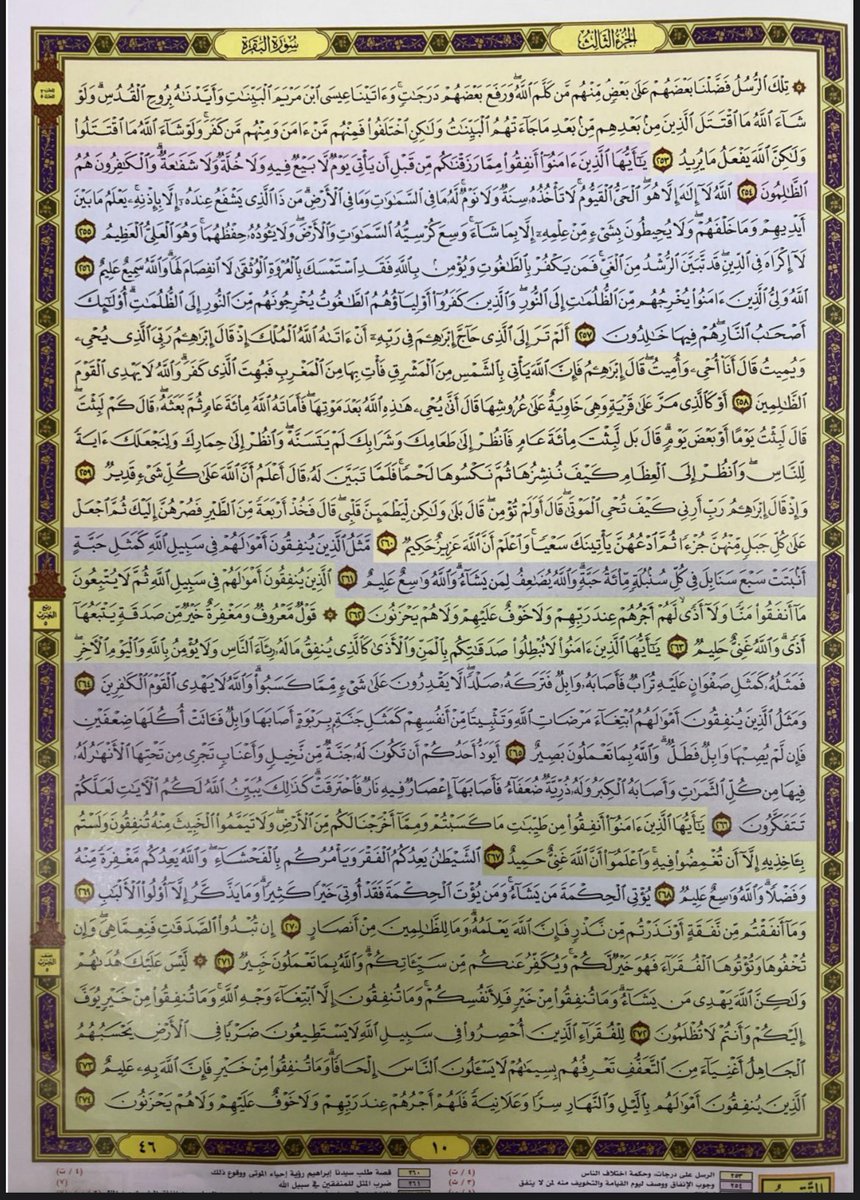 الجزء الثالث
سورة البقرة
۞ تِلْكَ ٱلرُّسُلُ فَضَّلْنَا بَعْضَهُمْ عَلَىٰ بَعْضٍ مِّنْهُم مَّن كَلَّمَ ٱللَّهُ وَرَفَعَ بَعْضَهُمْ دَرَجَٰتٍ وَءَاتَيْنَا عِيسَى ٱبْنَ مَرْيَمَ ٱلْبَيِّنَٰتِ وَأَيَّدْنَٰهُ بِرُوحِ ٱلْقُدُسِ وَلَوْ
شَآءَ ٱللَّهُ مَا ٱقْتَتَلَ ٱلَّذِينَ مِنۢ بَعْدِهِم مِّنۢ بَعْدِ مَا جَآءَتْهُمُ ٱلْبَيِّنَٰتُ وَلَٰكِنِ ٱخْتَلَفُوا۟ فَمِنْهُم مَّنْ ءَامَنَ وَمِنْهُم مَّن كَفَرَ وَلَوْ شَآءَ ٱللَّهُ مَا ٱقْتَتَلُوا۟
وَلَٰكِنَّ ٱللَّهَ يَفْعَلُ مَا يُرِيدُ ٢٥٣ يَٰٓأَيُّهَا ٱلَّذِينَ ءَامَنُوٓا۟ أَنفِقُوا۟ مِمَّا رَزَقْنَٰكُم مِّن قَبْلِ أَن يَأْتِىَ يَوْمٌ لَّا بَيْعٌ فِيهِ وَلَا خُلَّةٌ وَلَا شَفَٰعَةٌ وَٱلْكَٰفِرُونَ هُمُ
ٱلظَّٰلِمُونَ ٢٥٤ ٱللَّهُ لَآ إِلَٰهَ إِلَّا هُوَ ٱلْحَىُّ ٱلْقَيُّومُ لَا تَأْخُذُهُۥ سِنَةٌ وَلَا نَوْمٌ لَّهُۥ مَا فِى ٱلسَّمَٰوَٰتِ وَمَا فِى ٱلْأَرْضِ مَن ذَا ٱلَّذِى يَشْفَعُ عِندَهُۥٓ إِلَّا بِإِذْنِهِۦ يَعْلَمُ مَا بَيْنَ
أَيْدِيهِمْ وَمَا خَلْفَهُمْ وَلَا يُحِيطُونَ بِشَىْءٍ مِّنْ عِلْمِهِۦٓ إِلَّا بِمَا شَآءَ وَسِعَ كُرْسِيُّهُ ٱلسَّمَٰوَٰتِ وَٱلْأَرْضَ وَلَا يَـُٔودُهُۥ حِفْظُهُمَا وَهُوَ ٱلْعَلِىُّ ٱلْعَظِيمُ ٢٥٥
لَآ إِكْرَاهَ فِى ٱلدِّينِ قَد تَّبَيَّنَ ٱلرُّشْدُ مِنَ ٱلْغَىِّ فَمَن يَكْفُرْ بِٱلطَّٰغُوتِ وَيُؤْمِنۢ بِٱللَّهِ فَقَدِ ٱسْتَمْسَكَ بِٱلْعُرْوَةِ ٱلْوُثْقَىٰ لَا ٱنفِصَامَ لَهَا وَٱللَّهُ سَمِيعٌ عَلِيمٌ ٢٥٦
ٱللَّهُ وَلِىُّ ٱلَّذِينَ ءَامَنُوا۟ يُخْرِجُهُم مِّنَ ٱلظُّلُمَٰتِ إِلَى ٱلنُّورِ وَٱلَّذِينَ كَفَرُوٓا۟ أَوْلِيَآؤُهُمُ ٱلطَّٰغُوتُ يُخْرِجُونَهُم مِّنَ ٱلنُّورِ إِلَى ٱلظُّلُمَٰتِ أُو۟لَٰٓئِكَ
أَصْحَٰبُ ٱلنَّارِ هُمْ فِيهَا خَٰلِدُونَ ٢٥٧ أَلَمْ تَرَ إِلَى ٱلَّذِى حَآجَّ إِبْرَٰهِۦمَ فِى رَبِّهِۦٓ أَنْ ءَاتَىٰهُ ٱللَّهُ ٱلْمُلْكَ إِذْ قَالَ إِبْرَٰهِۦمُ رَبِّىَ ٱلَّذِى يُحْىِۦ
وَيُمِيتُ قَالَ أَنَا۠ أُحْىِۦ وَأُمِيتُ قَالَ إِبْرَٰهِۦمُ فَإِنَّ ٱللَّهَ يَأْتِى بِٱلشَّمْسِ مِنَ ٱلْمَشْرِقِ فَأْتِ بِهَا مِنَ ٱلْمَغْرِبِ فَبُهِتَ ٱلَّذِى كَفَرَ وَٱللَّهُ لَا يَهْدِى ٱلْقَوْمَ
ٱلظَّٰلِمِينَ ٢٥٨ أَوْ كَٱلَّذِى مَرَّ عَلَىٰ قَرْيَةٍ وَهِىَ خَاوِيَةٌ عَلَىٰ عُرُوشِهَا قَالَ أَنَّىٰ يُحْىِۦ هَٰذِهِ ٱللَّهُ بَعْدَ مَوْتِهَا فَأَمَاتَهُ ٱللَّهُ مِا۟ئَةَ عَامٍ ثُمَّ بَعَثَهُۥ قَالَ كَمْ لَبِثْتَ
قَالَ لَبِثْتُ يَوْمًا أَوْ بَعْضَ يَوْمٍ قَالَ بَل لَّبِثْتَ مِا۟ئَةَ عَامٍ فَٱنظُرْ إِلَىٰ طَعَامِكَ وَشَرَابِكَ لَمْ يَتَسَنَّهْ وَٱنظُرْ إِلَىٰ حِمَارِكَ وَلِنَجْعَلَكَ ءَايَةً
لِّلنَّاسِ وَٱنظُرْ إِلَى ٱلْعِظَامِ كَيْفَ نُنشِزُهَا ثُمَّ نَكْسُوهَا لَحْمًا فَلَمَّا تَبَيَّنَ لَهُۥ قَالَ أَعْلَمُ أَنَّ ٱللَّهَ عَلَىٰ كُلِّ شَىْءٍ قَدِيرٌ ٢٥٩
وَإِذْ قَالَ إِبْرَٰهِۦمُ رَبِّ أَرِنِى كَيْفَ تُحْىِ ٱلْمَوْتَىٰ قَالَ أَوَلَمْ تُؤْمِن قَالَ بَلَىٰ وَلَٰكِن لِّيَطْمَئِنَّ قَلْبِى قَالَ فَخُذْ أَرْبَعَةً مِّنَ ٱلطَّيْرِ فَصُرْهُنَّ إِلَيْكَ ثُمَّ ٱجْعَلْ
عَلَىٰ كُلِّ جَبَلٍ مِّنْهُنَّ جُزْءًا ثُمَّ ٱدْعُهُنَّ يَأْتِينَكَ سَعْيًا وَٱعْلَمْ أَنَّ ٱللَّهَ عَزِيزٌ حَكِيمٌ ٢٦٠ مَّثَلُ ٱلَّذِينَ يُنفِقُونَ أَمْوَٰلَهُمْ فِى سَبِيلِ ٱللَّهِ كَمَثَلِ حَبَّةٍ
أَنۢبَتَتْ سَبْعَ سَنَابِلَ فِى كُلِّ سُنۢبُلَةٍ مِّا۟ئَةُ حَبَّةٍ وَٱللَّهُ يُضَٰعِفُ لِمَن يَشَآءُ وَٱللَّهُ وَٰسِعٌ عَلِيمٌ ٢٦١ ٱلَّذِينَ يُنفِقُونَ أَمْوَٰلَهُمْ فِى سَبِيلِ ٱللَّهِ ثُمَّ لَا يُتْبِعُونَ
مَآ أَنفَقُوا۟ مَنًّا وَلَآ أَذًى لَّهُمْ أَجْرُهُمْ عِندَ رَبِّهِمْ وَلَا خَوْفٌ عَلَيْهِمْ وَلَا هُمْ يَحْزَنُونَ ٢٦٢ ۞ قَوْلٌ مَّعْرُوفٌ وَمَغْفِرَةٌ خَيْرٌ مِّن صَدَقَةٍ يَتْبَعُهَآ
أَذًى وَٱللَّهُ غَنِىٌّ حَلِيمٌ ٢٦٣ يَٰٓأَيُّهَا ٱلَّذِينَ ءَامَنُوا۟ لَا تُبْطِلُوا۟ صَدَقَٰتِكُم بِٱلْمَنِّ وَٱلْأَذَىٰ كَٱلَّذِى يُنفِقُ مَالَهُۥ رِئَآءَ ٱلنَّاسِ وَلَا يُؤْمِنُ بِٱللَّهِ وَٱلْيَوْمِ ٱلْءَاخِرِ
فَمَثَلُهُۥ كَمَثَلِ صَفْوَانٍ عَلَيْهِ تُرَابٌ فَأَصَابَهُۥ وَابِلٌ فَتَرَكَهُۥ صَلْدًا لَّا يَقْدِرُونَ عَلَىٰ شَىْءٍ مِّمَّا كَسَبُوا۟ وَٱللَّهُ لَا يَهْدِى ٱلْقَوْمَ ٱلْكَٰفِرِينَ ٢٦٤
وَمَثَلُ ٱلَّذِينَ يُنفِقُونَ أَمْوَٰلَهُمُ ٱبْتِغَآءَ مَرْضَاتِ ٱللَّهِ وَتَثْبِيتًا مِّنْ أَنفُسِهِمْ كَمَثَلِ جَنَّةٍۭ بِرَبْوَةٍ أَصَابَهَا وَابِلٌ فَـَٔاتَتْ أُكُلَهَا ضِعْفَيْنِ
فَإِن لَّمْ يُصِبْهَا وَابِلٌ فَطَلٌّ وَٱللَّهُ بِمَا تَعْمَلُونَ بَصِيرٌ ٢٦٥ أَيَوَدُّ أَحَدُكُمْ أَن تَكُونَ لَهُۥ جَنَّةٌ مِّن نَّخِيلٍ وَأَعْنَابٍ تَجْرِى مِن تَحْتِهَا ٱلْأَنْهَٰرُ لَهُۥ
فِيهَا مِن كُلِّ ٱلثَّمَرَٰتِ وَأَصَابَهُ ٱلْكِبَرُ وَلَهُۥ ذُرِّيَّةٌ ضُعَفَآءُ فَأَصَابَهَآ إِعْصَارٌ فِيهِ نَارٌ فَٱحْتَرَقَتْ كَذَٰلِكَ يُبَيِّنُ ٱللَّهُ لَكُمُ ٱلْءَايَٰتِ لَعَلَّكُمْ
تَتَفَكَّرُونَ ٢٦٦ يَٰٓأَيُّهَا ٱلَّذِينَ ءَامَنُوٓا۟ أَنفِقُوا۟ مِن طَيِّبَٰتِ مَا كَسَبْتُمْ وَمِمَّآ أَخْرَجْنَا لَكُم مِّنَ ٱلْأَرْضِ وَلَا تَيَمَّمُوا۟ ٱلْخَبِيثَ مِنْهُ تُنفِقُونَ وَلَسْتُم
بِـَٔاخِذِيهِ إِلَّآ أَن تُغْمِضُوا۟ فِيهِ وَٱعْلَمُوٓا۟ أَنَّ ٱللَّهَ غَنِىٌّ حَمِيدٌ ٢٦٧ ٱلشَّيْطَٰنُ يَعِدُكُمُ ٱلْفَقْرَ وَيَأْمُرُكُم بِٱلْفَحْشَآءِ وَٱللَّهُ يَعِدُكُم مَّغْفِرَةً مِّنْهُ
وَفَضْلًا وَٱللَّهُ وَٰسِعٌ عَلِيمٌ ٢٦٨ يُؤْتِى ٱلْحِكْمَةَ مَن يَشَآءُ وَمَن يُؤْتَ ٱلْحِكْمَةَ فَقَدْ أُوتِىَ خَيْرًا كَثِيرًا وَمَا يَذَّكَّرُ إِلَّآ أُو۟لُوا۟ ٱلْأَلْبَٰبِ ٢٦٩
وَمَآ أَنفَقْتُم مِّن نَّفَقَةٍ أَوْ نَذَرْتُم مِّن نَّذْرٍ فَإِنَّ ٱللَّهَ يَعْلَمُهُۥ وَمَا لِلظَّٰلِمِينَ مِنْ أَنصَارٍ ٢٧٠ إِن تُبْدُوا۟ ٱلصَّدَقَٰتِ فَنِعِمَّا هِىَ وَإِن
تُخْفُوهَا وَتُؤْتُوهَا ٱلْفُقَرَآءَ فَهُوَ خَيْرٌ لَّكُمْ وَيُكَفِّرُ عَنكُم مِّن سَيِّـَٔاتِكُمْ وَٱللَّهُ بِمَا تَعْمَلُونَ خَبِيرٌ ٢٧١ ۞ لَّيْسَ عَلَيْكَ هُدَىٰهُمْ
وَلَٰكِنَّ ٱللَّهَ يَهْدِى مَن يَشَآءُ وَمَا تُنفِقُوا۟ مِنْ خَيْرٍ فَلِأَنفُسِكُمْ وَمَا تُنفِقُونَ إِلَّا ٱبْتِغَآءَ وَجْهِ ٱللَّهِ وَمَا تُنفِقُوا۟ مِنْ خَيْرٍ يُوَفَّ
إِلَيْكُمْ وَأَنتُمْ لَا تُظْلَمُونَ ٢٧٢ لِلْفُقَرَآءِ ٱلَّذِينَ أُحْصِرُوا۟ فِى سَبِيلِ ٱللَّهِ لَا يَسْتَطِيعُونَ ضَرْبًا فِى ٱلْأَرْضِ يَحْسَبُهُمُ
ٱلْجَاهِلُ أَغْنِيَآءَ مِنَ ٱلتَّعَفُّفِ تَعْرِفُهُم بِسِيمَٰهُمْ لَا يَسْـَٔلُونَ ٱلنَّاسَ إِلْحَافًا وَمَا تُنفِقُوا۟ مِنْ خَيْرٍ فَإِنَّ ٱللَّهَ بِهِۦ عَلِيمٌ ٢٧٣
ٱلَّذِينَ يُنفِقُونَ أَمْوَٰلَهُم بِٱلَّيْلِ وَٱلنَّهَارِ سِرًّا وَعَلَانِيَةً فَلَهُمْ أَجْرُهُمْ عِندَ رَبِّهِمْ وَلَا خَوْفٌ عَلَيْهِمْ وَلَا هُمْ يَحْزَنُونَ ٢٧٤
ربع الحزب ٥
نصف الحزب ٥
١٠
٤٦
٢٥٣ الرسل على درجات، وحكمة اختلاف الناس (٤ / ت)
٢٥٤ وجوب الإنفاق ووصف ليوم القيامة والتخويف منه لمن لا ينفق (٣ / ت)
٢٦٠ قصة طلب سيدنا إبراهيم رؤية إحياء الموتى ووقوع ذلك (٤ / ت)
٢٦١ ضرب المثل للمنفقين في سبيل الله